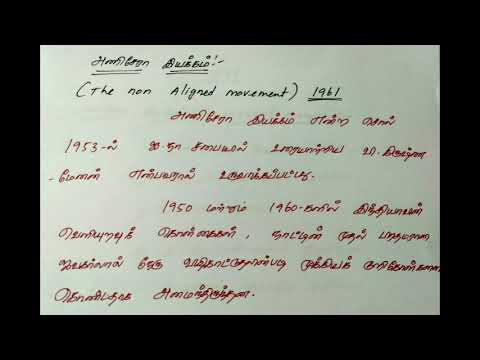 அணிசேரா இயக்கம்:-
(The non Aligned movement) 1961
அணிசேரா இயக்கம் என்ற சொல்
1953-ல் ஐ.நா சபையில் உரையாற்றிய வி.கிருஷ்ண
-மேனன் என்பவரால் உருவாக்கப்பட்டது.
1950 மற்றும் 1960-களில் இந்தியாவின்
வெளியுறவுக் கொள்கைகள், நாட்டின் முதல் பிரதமரான
ஜவகர்லால் நேரு வழிகாட்டுதலின்படி முக்கியக் குறிக்கோள்களை
கொண்டதாக அமைந்திருந்தன.